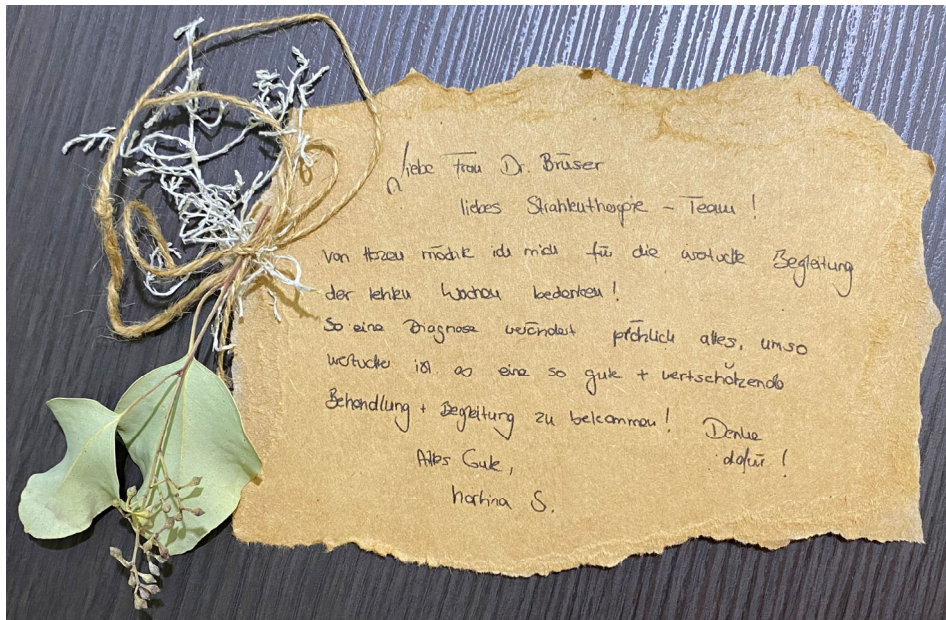 Liebe Frau Dr. Brüser
liebes Strahlentherapie - Team !
von Herzen möchte ich mich für die wertvolle Begleitung
der letzten Wochen bedanken !
So eine Diagnose verändert plötzlich alles, umso
wertvoller ist es eine so gute + wertschätzende
Behandlung + Begleitung zu bekommen ! Danke
dafür !
Alles Gute,
Martina S.